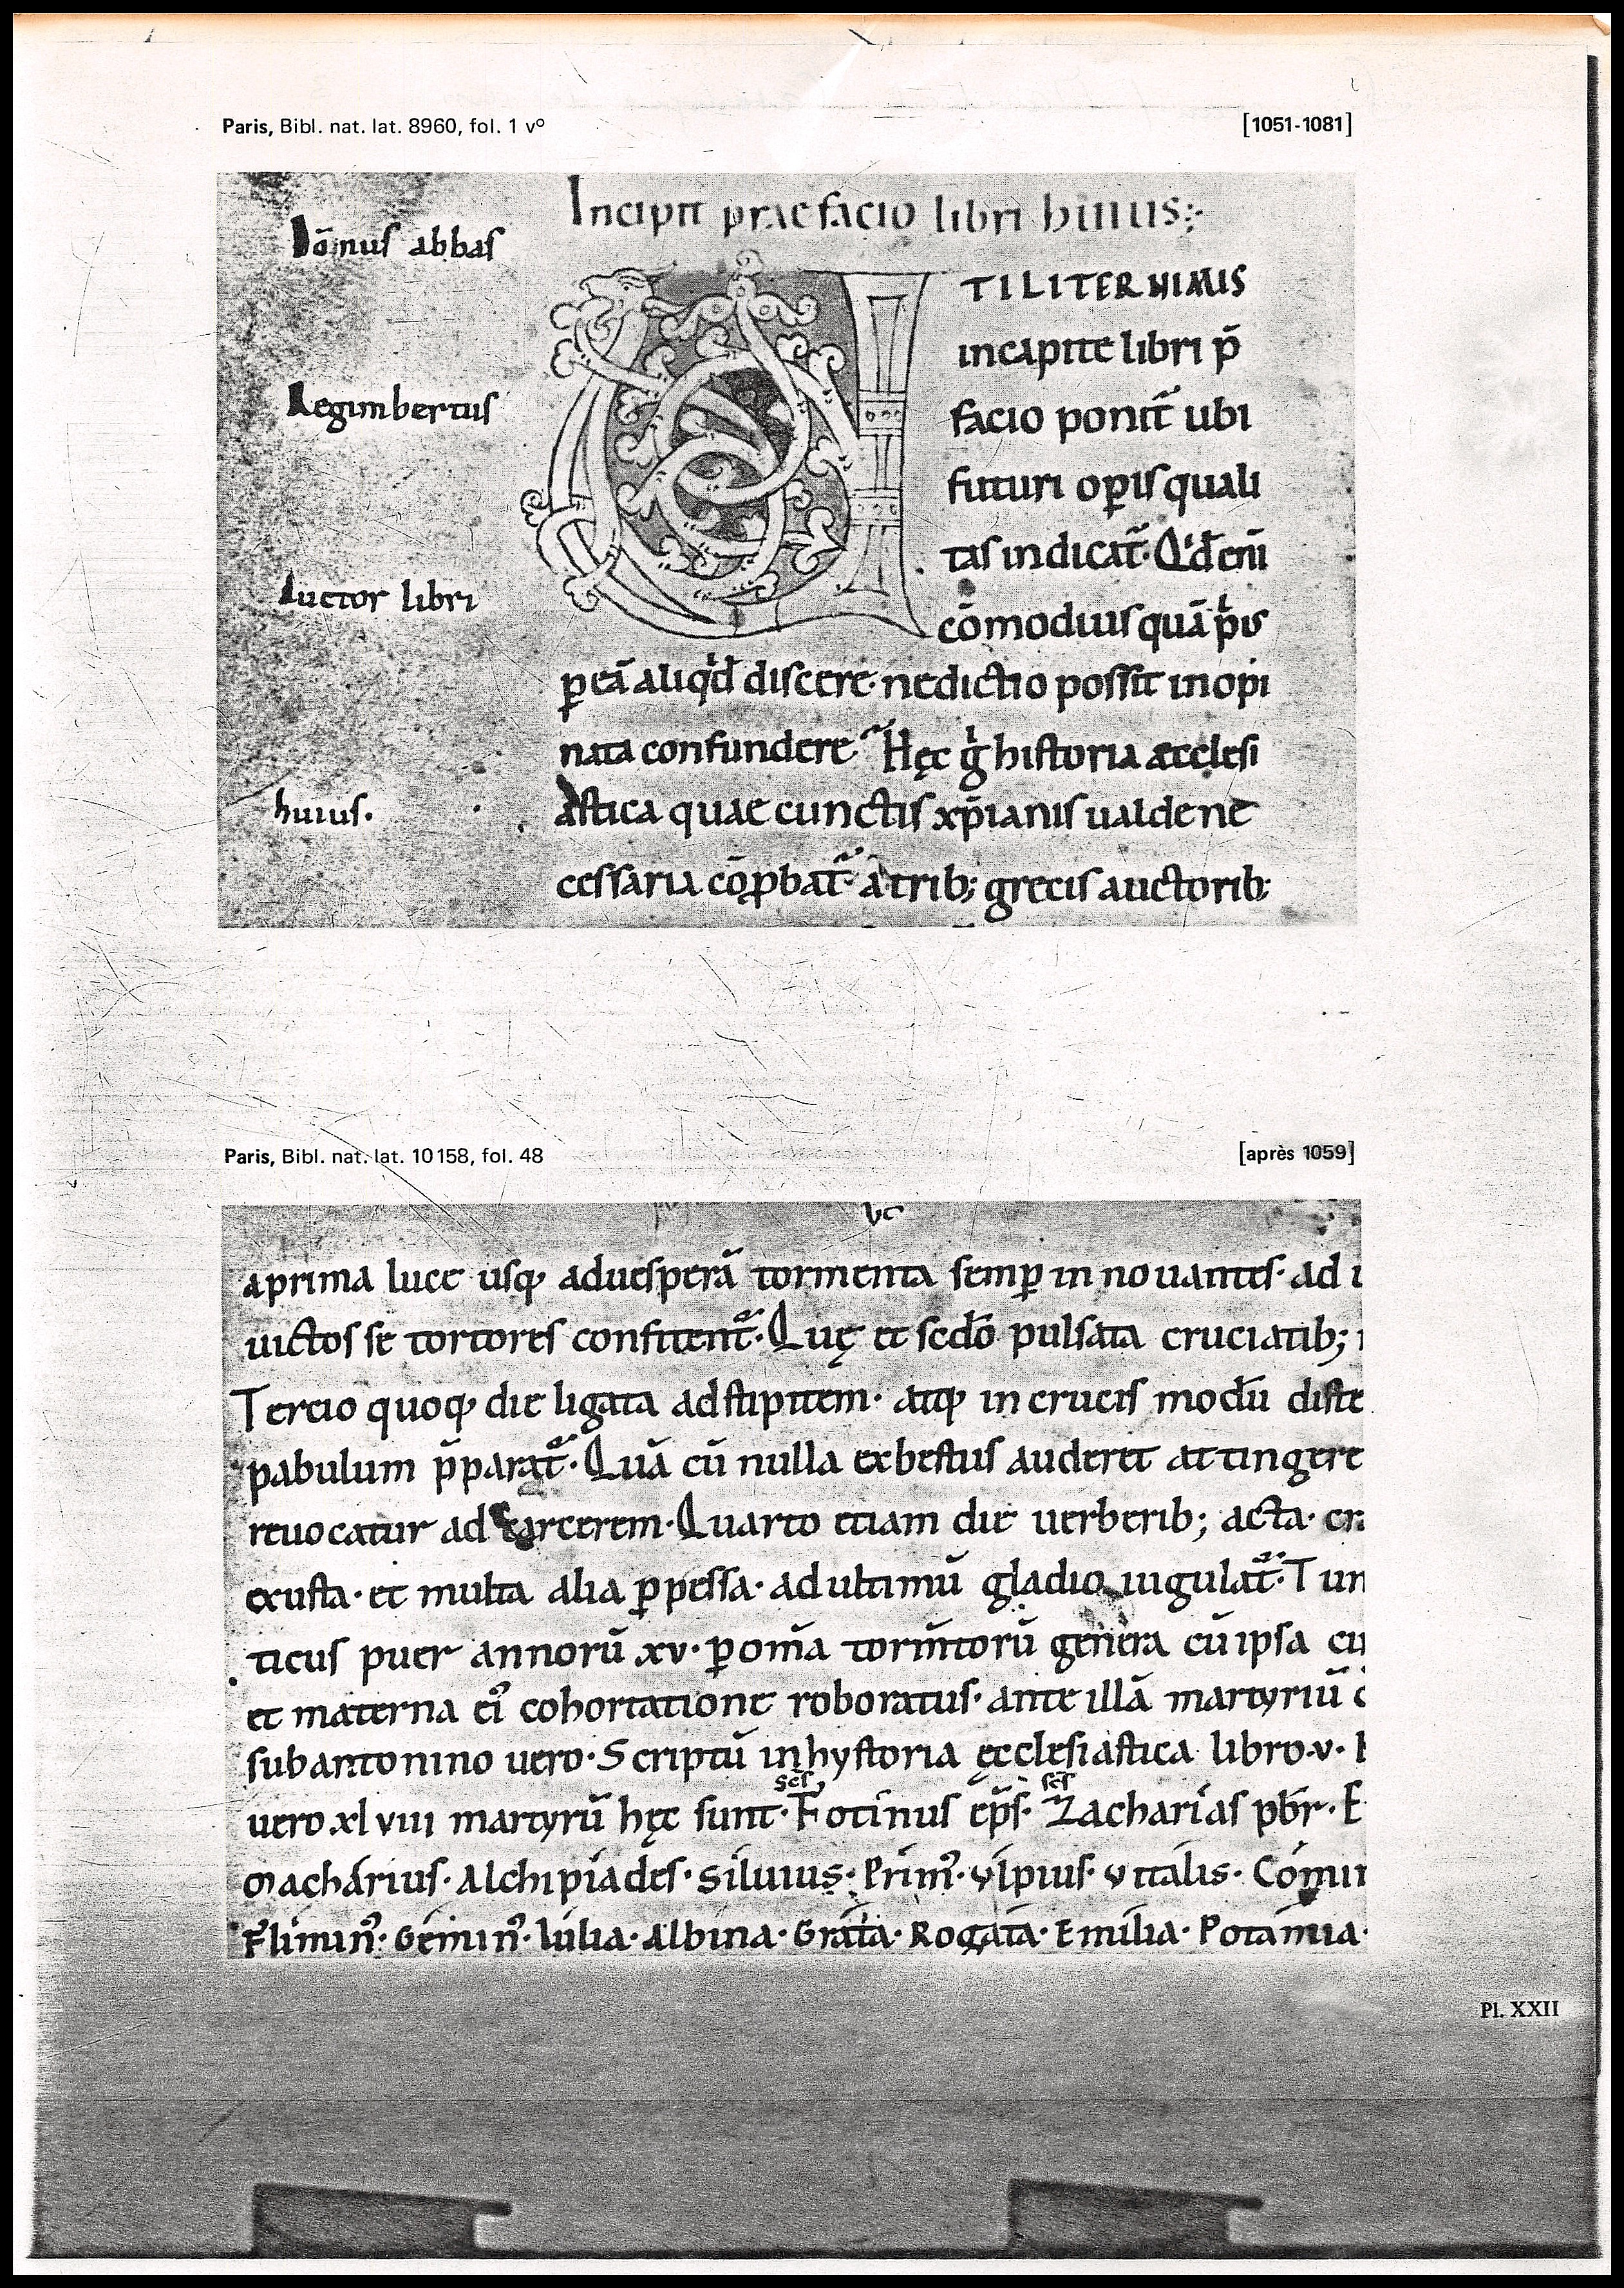 Paris, Bibl. nat. lat. 8960, fol. 1 vº
[1051-1081]
Incipit praefacio libri huius
Domnus abbas
Regimbertus
Auctor libri
huius.
UTILITER NIMIS
incapite libri p̄
facio ponit᷑ ubi
futuri oꝑis quali
tas indicat᷑· Qd̄ eni
cōmodius quā p̄us
ꝑ eā aliqd̄ discere· nedictio possit inopi
nata confundere Hęc g̾ historia aecclesi
astica quae cunctis xp̄ianis ualde ne
cessaria cōꝓbat᷑· a trib; grecis auctorib;
Paris, Bibl. nat. lat. 10158, fol. 48
[après 1059]
aprima luce usq; aduesperā tormenta semꝑ in nouantes· ad i
uictos se tortores confitent᷑· Quę et sc̄do pulsata cruciatib;
Tercio quoq; die ligata adstipitem· atq; in crucis modū diste
pabulum p̄parat᷑· Quā cū nulla exbestiis auderet attingere
reuocatur ad carcerem· Quarto etiam die uerberib; acta· cra
exusta· et multa alia ꝑpessa· ad ultimū gladio iugulat᷑· Tun
ticus puer annorū xv· ꝑ om̄a torm̄torū genera cū ipsa cu
et materna ei᾿ cohortatione roboratus· ante illā martyriū c
sub antonino uero· Scriptū in hystoria ęcclesiastica libro·v·
uero·xlviii martyrū hęc sunt· sc̄s Fotínus ep̄s· sc̄s Zacharías pb̄r· E
Machárius· Alchipíades· Siluius· Prim᾿· Vlpius· Vitalis· Cómin
F᾿limin᾿· Gémin᾿· Iúlia· Albina· Gráta· Rogáta· Emília· Potámia·
Pl. XXII